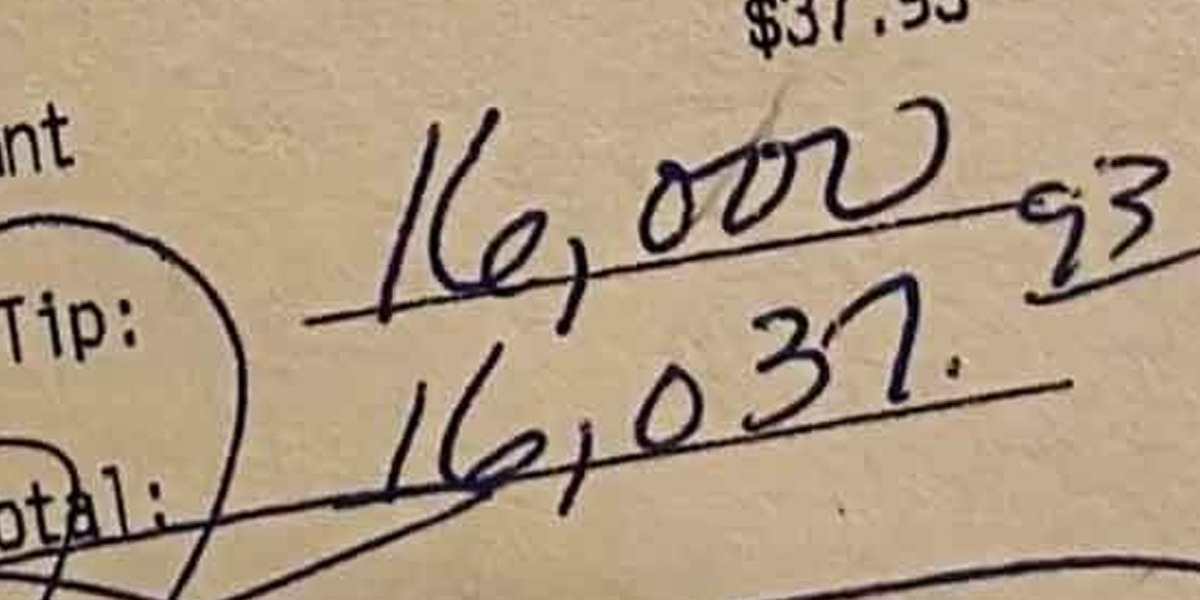 $37.93
Tip: 16,000
Total: 16,037.93